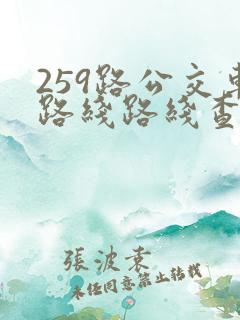 259路公交車
路綫路綫查
張波袁
未任同意禁止转载